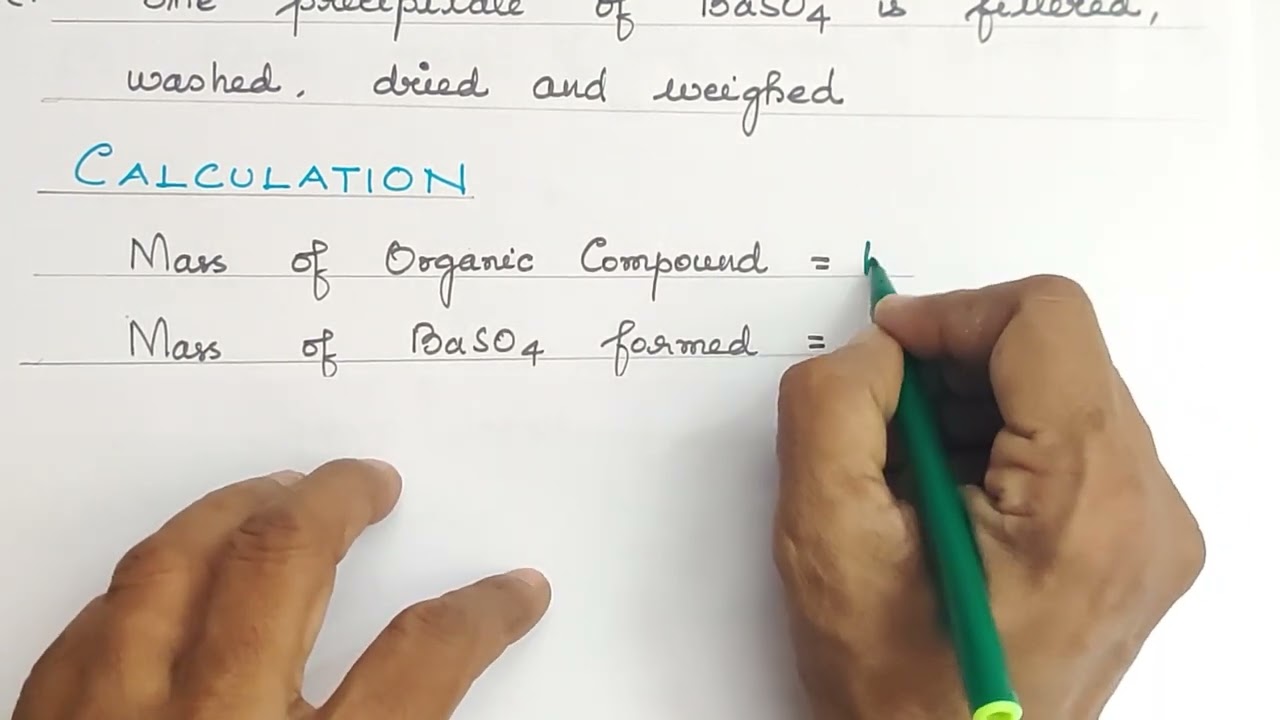 precipitate of BaSO4 is filtered,
washed, dried and weighed
CALCULATION
Mass of Organic Compound =
Mass of BaSO4 formed =